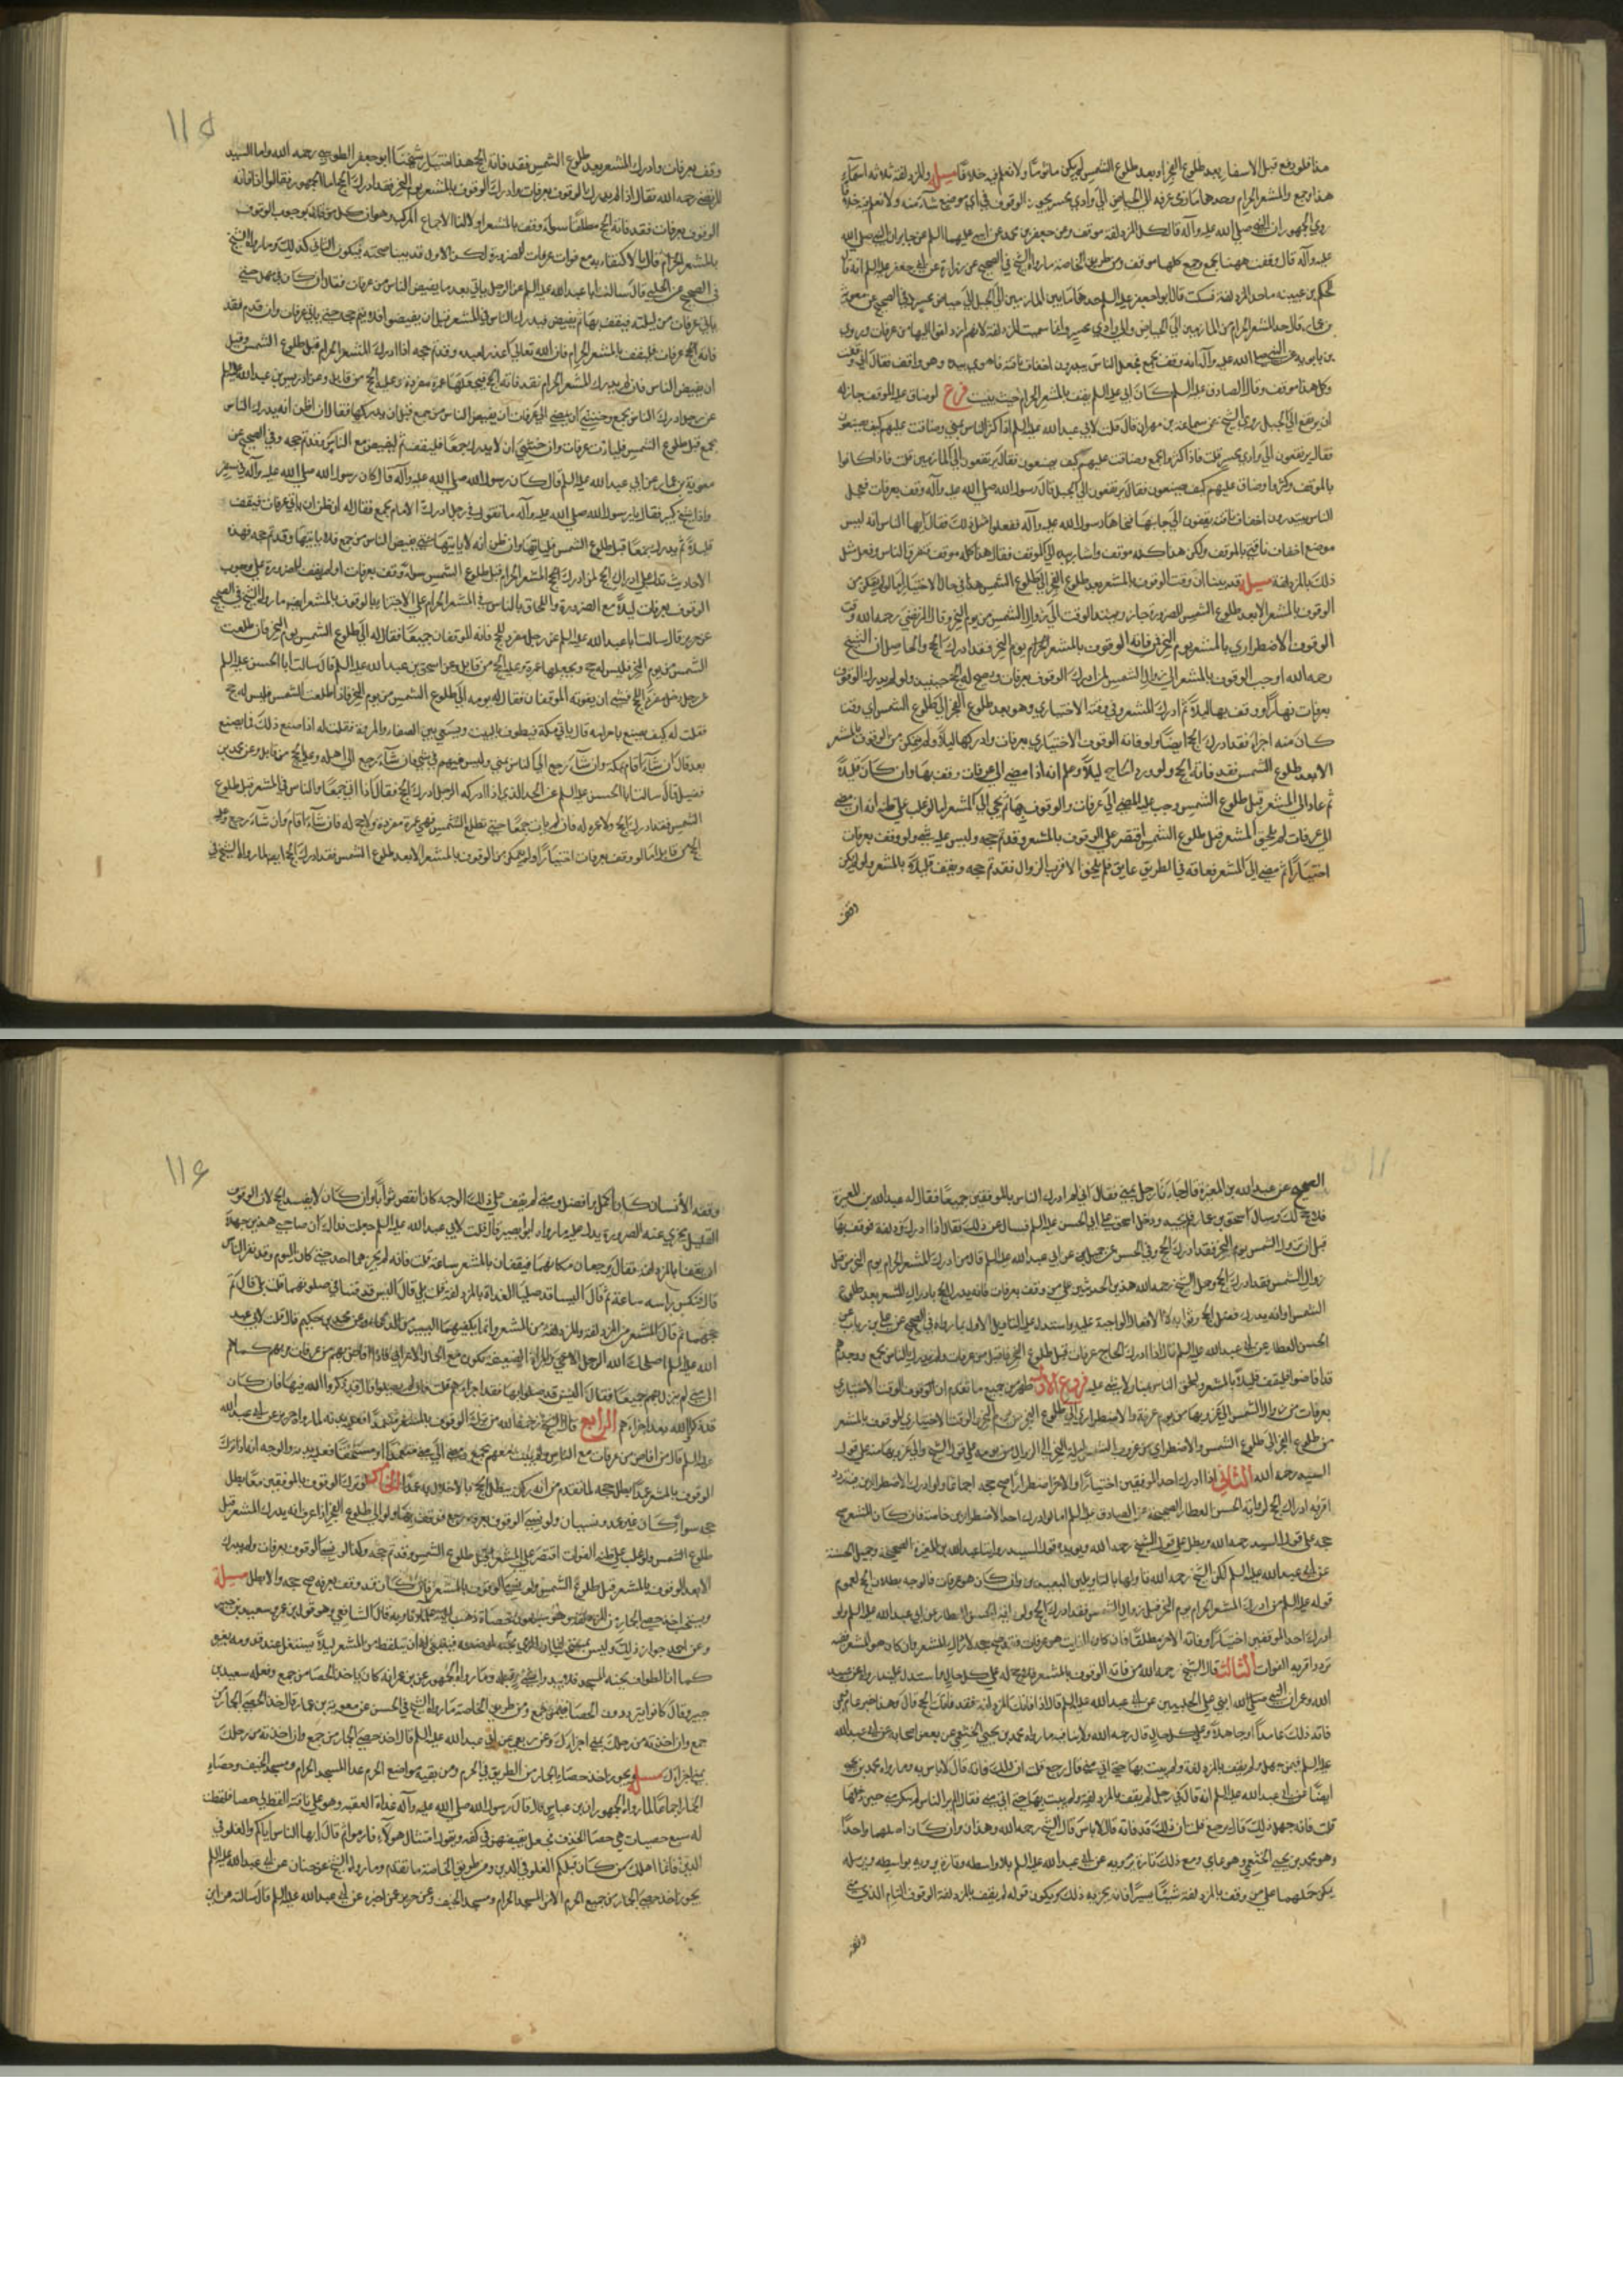 هذا فلو دفع قبل الاسفار بعد طلوع الفجر او بعد طلوع الشمس لم يكن مأثومًا ولا نعلم فيه خلافًا مسئلة وللمزدلفة ثلاثة اسمآء
هذا وجمع والمشعر الحرام وحدها ما بين مازمى عرفه الى الحياض الى وادي محسر يجوز الوقوف في اي موضع شآء منه ولا نعلم فيه خلافًا
روي الجمهور ان النبي صلى الله عليه وآله قال كل المزدلفة موقف وعن جعفر بن محمد عن ابيه عليهما السلم عن جابر ان النبي صلى الله
عليه وآله قال وقفت ههنا بجمع وجمع كلها موقف ومن طريق الخاصة ما رواه الشيخ في الصحيح عن زرارة عن ابي جعفر عليه السلم انه قال
للحكم بن عيينه ما حد المزدلفة فسكت فقال ابو جعفر عليه السلم حدها ما بين المازمين الى الجبل الى حياض محسر وفي الصحيح عن معوية
بن عمار قال حد المشعر الحرام من المازمين الى الحياض والى وادي محسر وانما سميت المزدلفة لانهم ازدلفوا اليها من عرفات وروي
بن بابويه عن النبي صلى الله عليه وآله انه وقف بجمع فجعل الناس يبتدرون اخفاف ناقته فاهوي بيده وهو واقف فقال اني وقفت
وكل هذا موقف وقال الصادق عليه السلم كان ابي عليه السلم يقف بالمشعر الحرام حيث يبيت فرع لو ضاق عليه الموقف جاز له
ان يرتفع الى الجبل روي الشيخ عن سماعة بن مهران قال قلت لابي عبد الله عليه السلم اذا كثر الناس بمنى وضاقت عليهم كيف يصنعون
فقال يرتفعون الى وادي محسر قلت فاذا كثروا بجمع وضاقت عليهم كيف يصنعون فقال يرتفعون الى المازمين قلت فاذا كانوا
بالموقف وكثروا وضاق عليهم كيف يصنعون فقال يرتفعون الى الجبل قال رسول الله صلى الله عليه وآله وقف بعرفات فجعل
الناس يبتدرون اخفاف ناقته يقفون الى جانبها فنحاها رسول الله عليه وآله ففعلوا مثل ذلك فقال ايها الناس انه ليس
موضع اخفاف ناقتي بالموقف ولكن هذا كله موقف واشار بيده الى الموقف فقال هذا كله موقف فتفرق الناس وفعل مثل
ذلك بالمزدلفة مسئلة قد بينا ان وقت الوقوف بالمشعر بعد طلوع الفجر الى طلوع الشمس هذا في حال الاختيار اما لو لم يتمكن من
الوقوف بالمشعر الا بعد طلوع الشمس للضرورة جاز ويمتد الوقت الى زوال الشمس من يوم النحر وقال المرتضى رحمه الله وقت
الوقوف الاضطراري بالمشعر يوم النحر فمن فاته الوقوف بالمشعر الحرام يوم النحر فقد ادرك الحج والحاصل ان الشيخ
رحمه الله اوجب الوقوف بالمشعر الى زوال الشمس لمن ادرك الوقوف بعرفات ويصح له الحج حينيذ ولو لم يدرك الوقوف
بعرفات نهارًا ووقف بها ليلًا ثم ادرك المشعر في وقته الاختياري وهو بعد طلوع الفجر الى طلوع الشمس اي وقت
كان منه اجزأه فقد ادرك الحج ايضًا ولو فاته الوقوف الاختياري بعرفات وادركها ليلًا ولم يتمكن من الوقوف بالمشعر
الا بعد طلوع الشمس فقد فاته الحج ولو ورد الحاج ليلًا وعلم انه اذا مضى الى عرفات وقف بها وان كان قليلًا
ثم عاد الى المشعر قبل طلوع الشمس وجب عليه المضي الى عرفات والوقوف بها ثم يجي الى المشعر اما لو غلب على ظنه انه ان مضى
الى عرفات لم يلحق المشعر قبل طلوع الشمس اقتصر على الوقوف بالمشعر وقد تم حجه وليس عليه شي ولو وقف بعرفات
اختيارًا ثم مضى الى المشعر فعاقه في الطريق عايق فلم يلحق الا قرب الزوال فقد تم حجه ويقف قليلًا بالمشعر ولو لم يكن
وقف
١١٥
وقف بعرفات وادرك المشعر بعد طلوع الشمس فقد فاته الحج هذا اختيار شيخنا ابو جعفر الطوسي رحمه الله واما السيد
المرتضى رحمه الله فقال اذا لم يدرك الوقوف بعرفات وادرك الوقوف بالمشعر يوم النحر فقد ادرك الحج اما الجمهور فقالوا اذا فاته
الوقوف بعرفات فقد فاته الحج مطلقًا سوآء وقف بالمشعر او لا لنا الاجماع المركب وهو ان كل من قال بوجوب الوقوف
بالمشعر الحرام قال بالاكتفاء به مع فوات عرفات للضرورة لكن الاول قد بينا صحته فيكون الثاني كذلك وما رواه الشيخ
في الصحيح عن الحلبي قال سالت ابا عبد الله عليه السلم عن الرجل ياتي بعد ما يفيض الناس من عرفات فقال ان كان في مهل حتى
ياتي عرفات من ليلته فيقف بها ثم يفيض فيدرك الناس في المشعر قبل ان يفيضوا فلا يتم حجه حتى ياتي عرفات وان قدم فقد
فاته الحج عرفات فليقف بالمشعر الحرام فان الله تعالى اعذر لعبده وقد تم حجه اذا ادرك المشعر الحرام قبل طلوع الشمس وقبل
ان يفيض الناس فان لم يدرك المشعر الحرام فقد فاته الحج فيجعلها عمرة مفردة وعليه الحج من قابل وعن ادريس بن عبد الله
عن رجل ادرك الناس بجمع وخشي ان يمضي الى عرفات ان يفيض الناس من جمع قبل ان يدركها فقال ان ظن انه يدرك الناس
بجمع قبل طلوع الشمس فليات عرفات وان خشي ان لا يدرك جمعًا فليقف ثم ليفيض مع الناس وقد تم حجه وفي الصحيح عن
معوية بن عمار عن ابي عبد الله عليه السلم قال كان رسول الله صلى الله عليه وآله قال كان رسول الله صلى الله عليه وآله في سفر
واذا شيخ كبير فقال يا رسول الله صلى الله عليه وآله ما تقول في رجل ادرك الامام بجمع فقال له ان ظن ان ياتي عرفات فيقف
قليلًا ثم يدرك جمعًا قبل طلوع الشمس فلياتها وان ظن انه لا ياتيها حتى يفيض الناس من جمع فلا ياتيها وقد تم حجه فهذه
الاحاديث تدل على ادراك الحج لمن ادرك الحج المشعر الحرام قبل طلوع الشمس سوآء وقف بعرفات او لم يقف للضرورة على وجوب
الوقوف بعرفات ليلًا مع الضرورة واللحاق بالناس في المشعر الحرام على الاجتزاء بالوقوف بالمشعر ايضًا ما رواه الشيخ في الصحيح
عن حريز قال سالت ابا عبد الله عليه السلم عن رجل مفرد للحج فاته الموقفان جميعًا فقال له الى طلوع الشمس يوم النحر فان طلعت
الشمس من يوم النحر فليس له حج ويجعلها عمرة وعليه الحج من قابل وعن اسحق بن عبد الله عليه السلم قال سالت ابا الحسن عليه السلم
عن رجل دخل مفردًا للحج فخشي ان يفوته الموقفان فقال له يومه الى طلوع الشمس من يوم النحر فاذا طلعت الشمس فليس له حج
فقلت له كيف يصنع باحرامه قال ياتي مكة فيطوف بالبيت ويسعى بين الصفا والمروة فقلت له اذا صنع ذلك فما يصنع
بعد قال ان شآء اقام بمكة وان شآء رجع الى الناس بمنى وليس فيهم في شي وان شآء رجع الى اهله وعليه الحج من قابل وعن محمد بن
فضيل قال سالت ابا الحسن عليه السلم عن الحد الذي اذا ادركه الرجل ادرك الحج فقال اذا اتى جمعًا والناس في المشعر قبل طلوع
الشمس فقد ادرك الحج ولا عمرة له فان لم يات جمعًا حتى تطلع الشمس فهي عمرة مفردة ولا حج له فان شآء اقام وان شآء رجع وعليه
الحج من قابل اما لو وقف بعرفات اختيارًا ولم يتمكن من الوقوف بالمشعر الا بعد طلوع الشمس فقد ادرك الحج ايضًا لما رواه الشيخ في
الصحيح عن عبد الله بن المغيرة قال جاءنا رجل بمنى فقال اني لم ادرك الناس بالموقفين جميعًا فقال له عبد الله بن المغيرة
فلا حج لك وسال اسحق بن عمار فلم يجبه ودخل اسحق على ابي الحسن عليه السلم فسال عن ذلك فقال اذا ادرك مزدلفة فوقف بها
قبل ان تزول الشمس يوم النحر فقد ادرك الحج وفي الحسن عن جميل عن ابي عبد الله عليه السلم قال من ادرك المشعر الحرام يوم النحر من قبل
زوال الشمس فقد ادرك الحج وحمل الشيخ رحمه الله هذين الحديثين على من وقف بعرفات فانه يدرك الحج بادراك المشعر بعد طلوع
الشمس او انه يدرك فضل الحج وثوابه لا الافعال الواجبة عليه واستدل على التاويل الاول بما رواه في الصحيح عن علي بن رئاب عن
الحسن العطار عن ابي عبد الله عليه السلم قال اذا ادرك الحاج عرفات قبل طلوع الفجر فاقبل من عرفات ولم يدرك الناس بجمع ووجدهم
قد افاضوا فليقف قليلًا بالمشعر وليلحق الناس بمنى ولا شي عليه فروع الاول ظهر من جميع ما تقدم ان الوقوف الوقت الاختياري
بعرفات من زوال الشمس الى غروبها من يوم عرفة والاضطراري الى طلوع الفجر من يوم النحر والوقت الاختياري للوقوف بالمشعر
من طلوع الفجر الى طلوع الشمس والاضطراري من غروب الشمس ليلة النحر الى الزوال من يومه على قول الشيخ والى غروبها منه على قول
السيد رحمه الله الثاني اذا ادرك احد الموقفين اختيارًا والاخر اضطرارًا صح حجه اجماعًا ولو ادرك الاضطرارين فتردد
اقربه ادراك الحج لرواية الحسن العطار الصحيحة عن الصادق عليه السلم اما لو ادرك احد الاضطرارين خاصة فان كان المشعر صح
حجه على قول السيد رحمه الله وبطل على قول الشيخ رحمه الله ويؤيد قول السيد روايتا عبد الله بن المغيرة الصحيحة وجميل الحسنة
عن ابي عبد الله عليه السلم لكن الشيخ رحمه الله تاولهما بالتاويلين البعيدين وان كان هو عرفات فالوجه بطلان الحج لعموم
قوله عليه السلم من ادرك المشعر الحرام يوم النحر قبل زوال الشمس فقد ادرك الحج ولرواية الحسن العطار عن ابي عبد الله عليه السلم ولو
ادرك احد الموقفين اختيارًا وفاته الاخر مطلقًا فان كان الفايت هو عرفات فقد صح حجه لادراك المشعر وان كان هو المشعر ففيه
تردد اقربه الفوات الثالث قال الشيخ رحمه الله من فاته الوقوف بالمشعر فلا حج له على كل حال واستدل عليه بما رواه عن عبيد
الله وعمران ابني علي الحلبيين عن ابي عبد الله عليه السلم قال اذا فاتتك المزدلفة فقد فاتك الحج قال وهذا خبر عام فمن
فاته ذلك عامدًا او جاهلًا وعلى كل حال قال رحمه الله ولا ينافيه ما رواه محمد بن يحيى الخثعمي عن بعض اصحابه عن ابي عبد الله
عليه السلم فيمن جهل ولم يقف بالمزدلفة ولم يبت بها حتى اتى منى قال يرجع قلت ان ذلك فاته قال لا باس به وما رواه محمد بن يحيى
ايضًا عن ابي عبد الله عليه السلم انه قال في رجل لم يقف بالمزدلفة ولم يبت بها حتى اتى منى فقال الم ير الناس لم ينكر منى حين دخلها
قلت فانه جهل ذلك قال يرجع قلت ان ذلك قد فاته قال لا باس قال الشيخ رحمه الله وهذان وان كان اصلهما واحدًا
وهو محمد بن يحيى الخثعمي وهو عامي ومع ذلك تارة يرويه عن ابي عبد الله عليه السلم بلا واسطه وتارة يرويه بواسطه ويرسله
يمكن حملهما على من وقف بالمزدلفة شيئًا يسيرًا فانه يجزيه ذلك ويكون قوله لم يقف بالمزدلفة الوقوف التام الذي متى
وقفه
١١٦
وقفه الانسان كان اكمل وافضل ومتى لم يقف على ذلك الوجه كان انقص ثوابًا وان كان لا يفسد الحج لان الوقوف
القليل يجزي عنه للضرورة يدل عليه ما رواه ابو بصير قال قلت لابي عبد الله عليه السلم جعلت فداك ان صاحبي هذين جهلا
ان يقفا بالمزدلفة فقال يرجعان مكانهما فيقفان بالمشعر ساعة قلت فانه لم يخبرهما احد حتى كان اليوم وقد نفر الناس
قال فنكس راسه ساعة ثم قال اليسا قد صليا الغداة بالمزدلفة قلت بلى قال اليس قد قنتا في صلوتهما قلت بلى قال تم
حجهما ثم قال المشعر من المزدلفة والمزدلفة من المشعر وانما يكفيهما اليسير من الدعاء وعن محمد بن حكيم قال قلت لابي عبد
الله عليه السلم اصلحك الله الرجل الاعجمي والمراة الضعيفة تكون مع الجمال الاعرابي فاذا افاض بهم من عرفات مر بهم كما هم
الى منى لم ينزل بهم جميعًا فقال اليس قد صلوا بها فقد اجزاهم قلت فان لم يصلوا قال قد ذكروا الله فيها فان كان
قد ذكروا الله فقد اجزاهم الرابع قال الشيخ رحمه الله من ترك الوقوف بالمشعر متعمدًا فعليه بدنة لما رواه حريز عن ابي عبد الله
عليه السلم قال من افاض من عرفات مع الناس ولم يبت معهم بجمع ومضى الى منى متعمدًا او مستخفًا فعليه بدنة والوجه انه اذا ترك
الوقوف بالمشعر عمدًا بطل حجه لما تقدم من انه ركن يبطل الحج بالاخلال به عمدًا الخامس لو ترك الوقوف بالموقفين معًا بطل
حجه سوآء كان عن عمد ونسيان ولو نسي الوقوف بعرفة رجع فوقف بها ولو الى طلوع الفجر اذا عرف انه يدرك المشعر قبل
طلوع الشمس ولو غلب على ظنه الفوات اقتصر على المشعر قبل طلوع الشمس وقد تم حجه وكذا لو نسي الوقوف بعرفات ولم يدرك
الا بعد الوقوف بالمشعر قبل طلوع الشمس ولو نسي الوقوف بالمشعر فان كان قد وقف بعرفه صح حجه والا بطل مسئلة
ويستحب اخذ حصى الجمار من المزدلفة وهو سبعون حصاة ذهب اليه علماؤنا وبه قال الشافعي وهو قول بن عمر وسعيد بن جبير
وعن احمد جواز ذلك وليس بمستحب لنا ان الرمي تحية لموضعه فينبغي له ان يلتقط من المشعر ليلًا يشتغل عند قدومه بغيره
كما ان الطواف تحية المسجد فلا يبدا بشي قبله وما رواه الجمهور عن بن عمر انه كان ياخذ الحصا من جمع وفعله سعيد بن
جبير وقال كانوا يتزودون الحصا من جمع ومن طريق الخاصة ما رواه الشيخ في الحسن عن معوية بن عمار قال خذ حصى الجمار من
جمع وان اخذته من رحلك بمنى اجزاك وعن ربعي عن ابي عبد الله عليه السلم قال خذ حصى الجمار من جمع وان اخذته من رحلك
بمنى اجزاك مسئلة ويجوز اخذ حصاء الجمار من الطريق في الحرم ومن بقية مواضع الحرم عدا المسجد الحرام ومسجد الخيف وحصاء
الجمار اجماعًا لما رواه الجمهور ان بن عباس قال قال رسول الله صلى الله عليه وآله غداة العقبه وهو على ناقته القط لي حصا فلقطت
له سبع حصيات هي حصا الخذف فجعل يقبضهن في كفه ويقول امثال هولاء فارموا ثم قال ايها الناس اياكم والغلو في
الدين فانما اهلك من كان قبلكم الغلو في الدين ومن طريق الخاصة ما تقدم وما رواه الشيخ عن حنان عن ابي عبد الله عليه السلم
يجوز اخذ حصى الجمار من جميع الحرم الا من المسجد الحرام ومسجد الخيف وعن حريز عمن اخبره عن ابي عبد الله عليه السلم قال سالته من اين